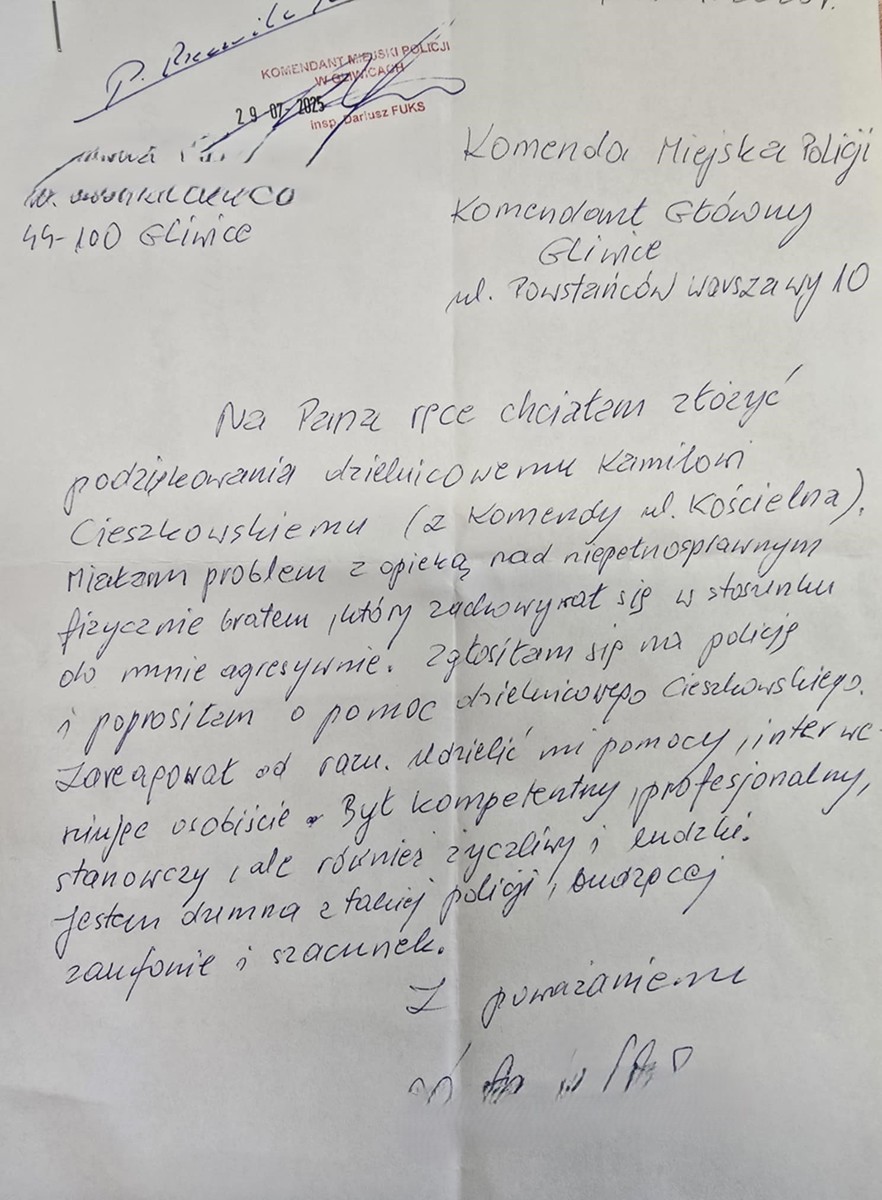 KOMENDANT MIEJSKI POLICJI
W GLIWICACH
29-07-2025
insp. Dariusz FUKS
44-100 Gliwice
Komenda Miejska Policji
Komendant Główny
Gliwice
ul. Powstańców Warszawy 10
Na Pana ręce chciałam złożyć
podziękowania dzielnicowemu Kamilowi
Cieszkowskiemu (z Komendy ul. Kościelna).
Miałam problem z opieką nad niepełnosprawnym
fizycznie bratem, który zachowywał się w stosunku
do mnie agresywnie. Zgłosiłam się na policję
i poprosiłam o pomoc dzielnicowego Cieszkowskiego.
Zareagował od razu. Udzielić mi pomocy, interwe-
niując osobiście. Był kompetentny, profesjonalny,
stanowczy, ale również życzliwy i ludzki.
Jestem dumna z takiej policji, budzącej
zaufanie i szacunek.
Z poważaniem